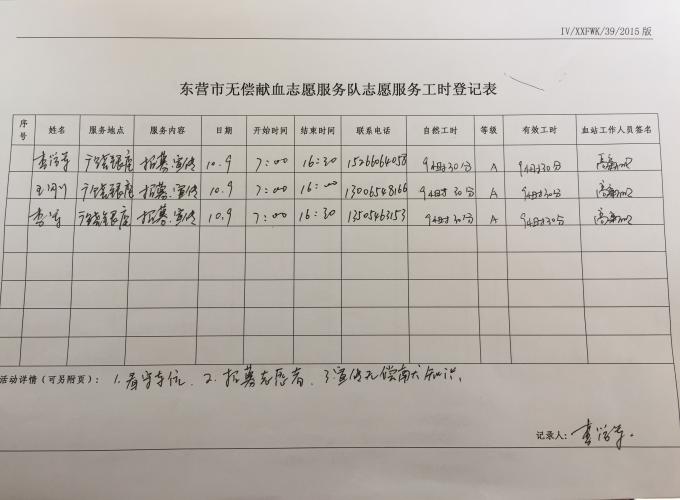 IV/XXFWK/39/2015 版
东营市无偿献血志愿服务队志愿服务工时登记表
序号 姓名 服务地点 服务内容 日期 开始时间 结束时间 联系电话 自然工时 等级 有效工时 血站工作人员签名
银座 招募.宣传 10.9 7:00 16:30 15266064058 9小时30分 A 9小时30分
银座 招募.宣传 10.9 7:00 16:00 13006548166 9小时30分 A 9小时30分
李涛 银座 招募.宣传 10.9 7:00 16:30 13505463153 9小时30分 A 9小时30分
活动详情（可另附页）： 1.看守车位、2.招募志愿者、3宣传无偿献知识、
记录人：